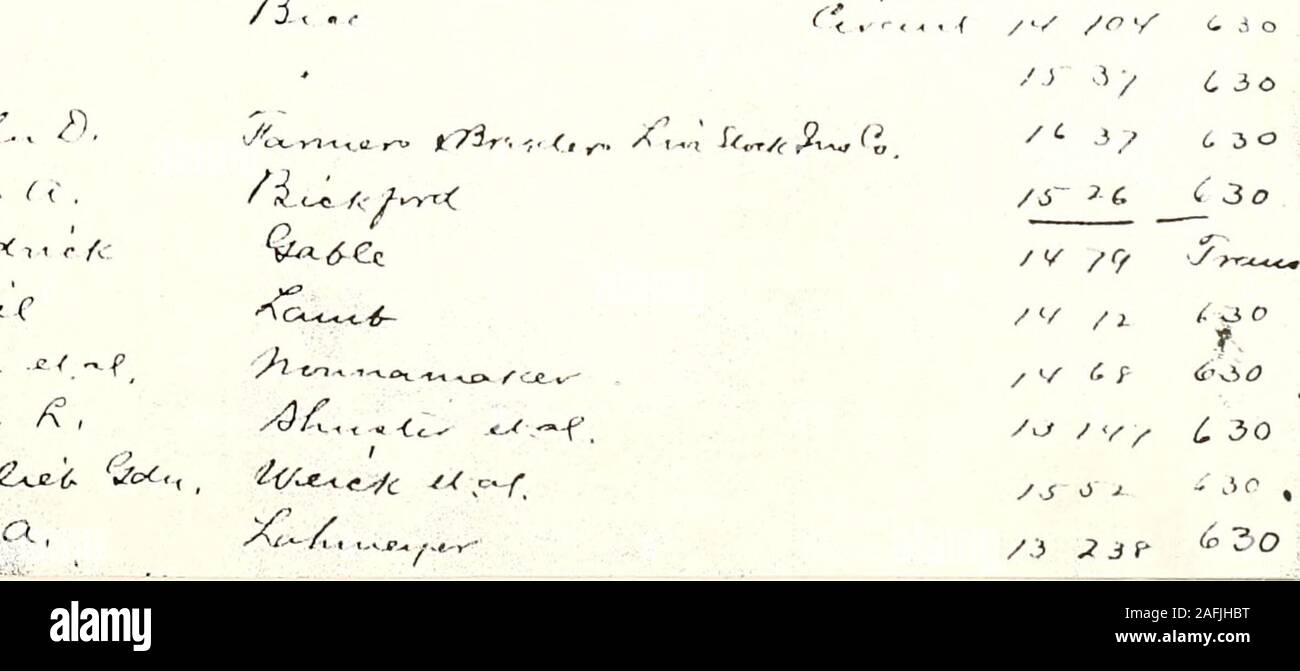 Circuit 14 104 630
" 15 37 630
D. Farmers & Breeders Live Stock Ins Co. 16 37 630
A. Bickford 15 26 630
drick Gable 14 79 Trans
Lamb 14 12 630
et al. Nonnamaker 14 68 630
L. Shuster et al. 13 147 630
Gdn. Weick et al. 15 52 630
A. Lohmeyer 13 238 630
alamy
Image ID: 2AFJHBT
www.alamy.com